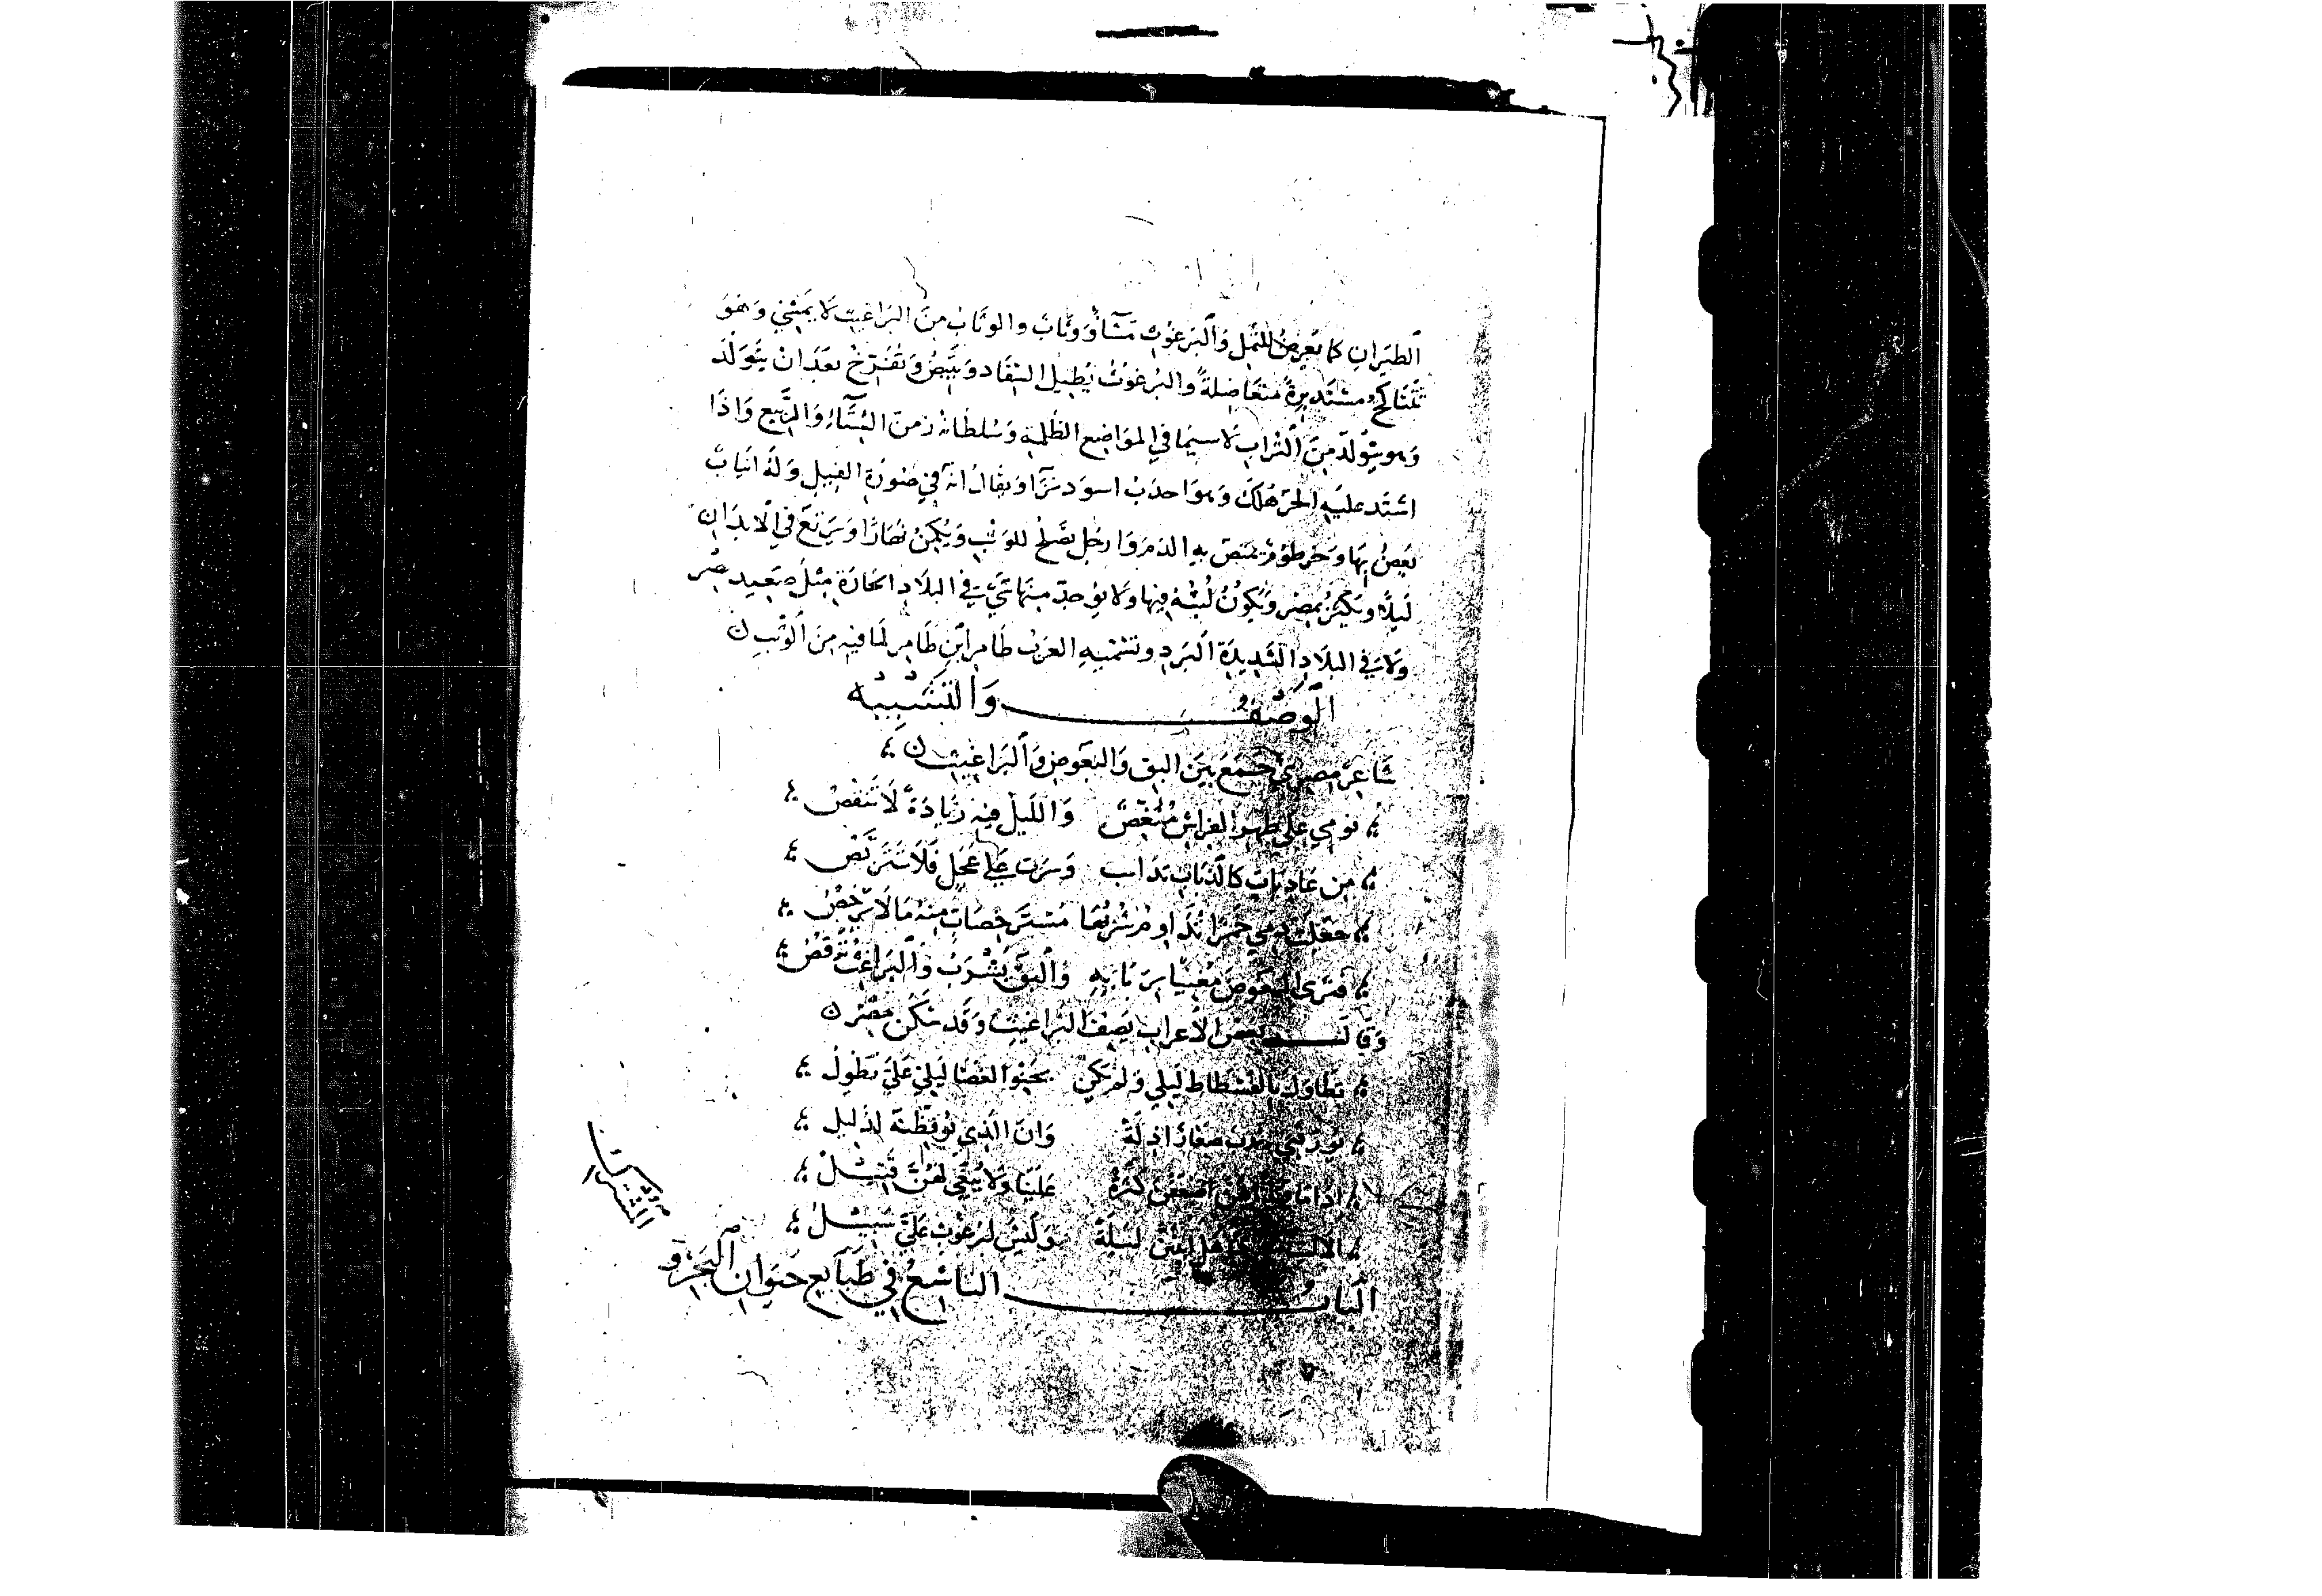 الطيران كما يعرض للنمل وَالبرغوث مشآءٌ ووثاب والوثاب من البراغيث لا يمشي وَهو
تلناكح مستديرة متعاضلة والبرغوث يُطيل السفاد وَيبيض وَتفرخ بعد ان يتولد
وَهو يتولد من التراب لا سيما في المواضع الظلمه وَسلطانه زمن الشتآء وَالربيع وَاذا
اشتد عليه الحر هلك وَهوَ احدب اسود نزآ وَيقال انه في صورة الفيل وَله انياب
يعض بها وَخرطوم يمتص به الدم وَارجل تصلح للوثب وَيكمن نهارًا وَيرتع في الابدان
ليلًا ويكثر بمصر وَيكون لبثه فيها ولا يوجد منها شي في البلاد الحارة مثل صعيد مصر
وَلا في البلاد الشديدة البرد وتسميه العرب طامر ابن طامر لما فيه من الوثب ن
الوصف وَالتشبيه
شاعر مصري جمع بين البق وَالبعوض وَالبراغيث ن
نومي على ظهر الفراش منغص وَالليل فيه زيادة لا تنقص
من عاديات كالذئاب تذاب وَسرت على عجل فلا تتربص
جعلت دمي خمرًا تداوم شربها مسترخصات منه ما لا يرخص
فترى البعوض مغنيًا بربابه وَالبق يشرب وَالبراغث ترقص
وَقال بعض الاعراب يصف البراغيث وَقد سكن مصر ن
تطاول بالفسطاط ليلي وَلم يكن بحنو الغضا ليلي علي يطول
يورقني حدب صغار اذلة وَان الذي يوقظنه لذليل
اذا ما قتلناهن اضعفن كثرة علينا وَلا يبقى لهن قتيل
الا ليت هل ابيتن ليلة وَليس لبرغوث علي سبيل
الباب التاسع في طبايع حيوان البحر و
المشترك